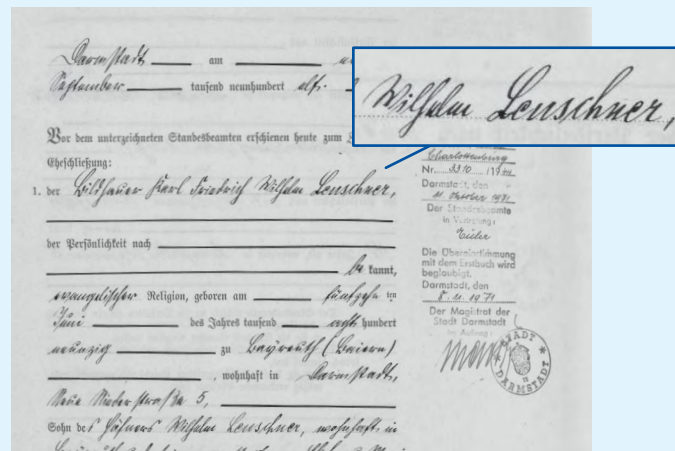 Darmstadt am
September tausend neunhundert elf.
Wilhelm Leuschner,
Vor dem unterzeichneten Standesbeamten erschienen heute zum
Eheschließung:
1. der Bildhauer Karl Friedrich Wilhelm Leuschner,
der Persönlichkeit nach
be kannt,
evangelischer Religion, geboren am fünfzehn ten
Juni des Jahres tausend acht hundert
neunzig zu Bayreuth (Baiern)
, wohnhaft in Darmstadt,
Neue Niederstraße 5,
Sohn des Wilhelm Leuschner, wohnhaft in
Charlottenburg
Nr. 3310 /1944
Darmstadt, den
Oktober 1971
Der Standesbeamte
in Vertretung:
Die Übereinstimmung
mit dem Erstbuch wird
beglaubigt.
Darmstadt, den
8. 11. 1971
Der Magistrat der
Stadt Darmstadt
Im Auftrag:
STADT
DARMSTADT